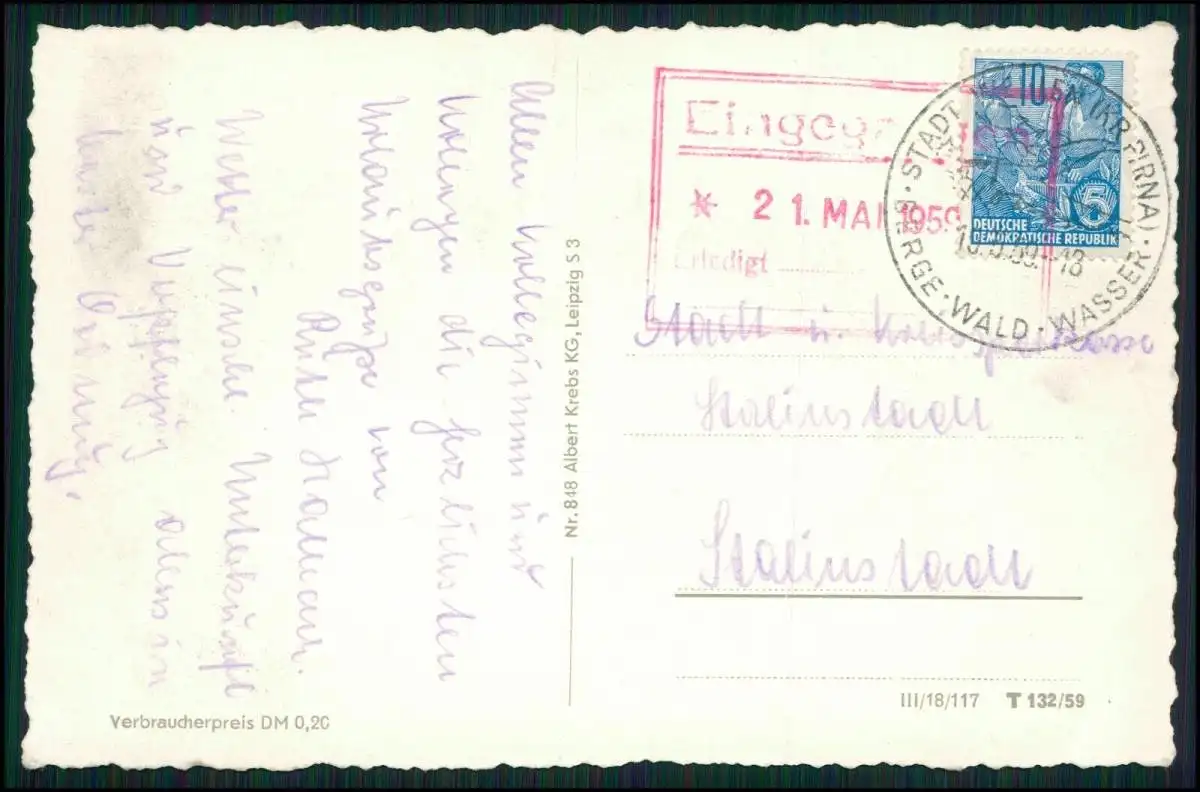 Allen Kolleginnen und
Kollegen die herzlichsten
Urlaubsgrüße von
Ruth
Wetter einsch. Unterkunft
und Verpflegung alles in
bester Ordnung.
Verbraucherpreis DM 0,20
Nr. 848 Albert Krebs KG, Leipzig S 3
* 21. MAI 1959
Erledigt
10
5
DEUTSCHE
DEMOKRATISCHE REPUBLIK
STADT (KR. PIRNA)
BERGE · WALD · WASSER
Stadt u. Kreissparkasse
Stalinstadt
Stalinstadt
III/18/117 T 132/59